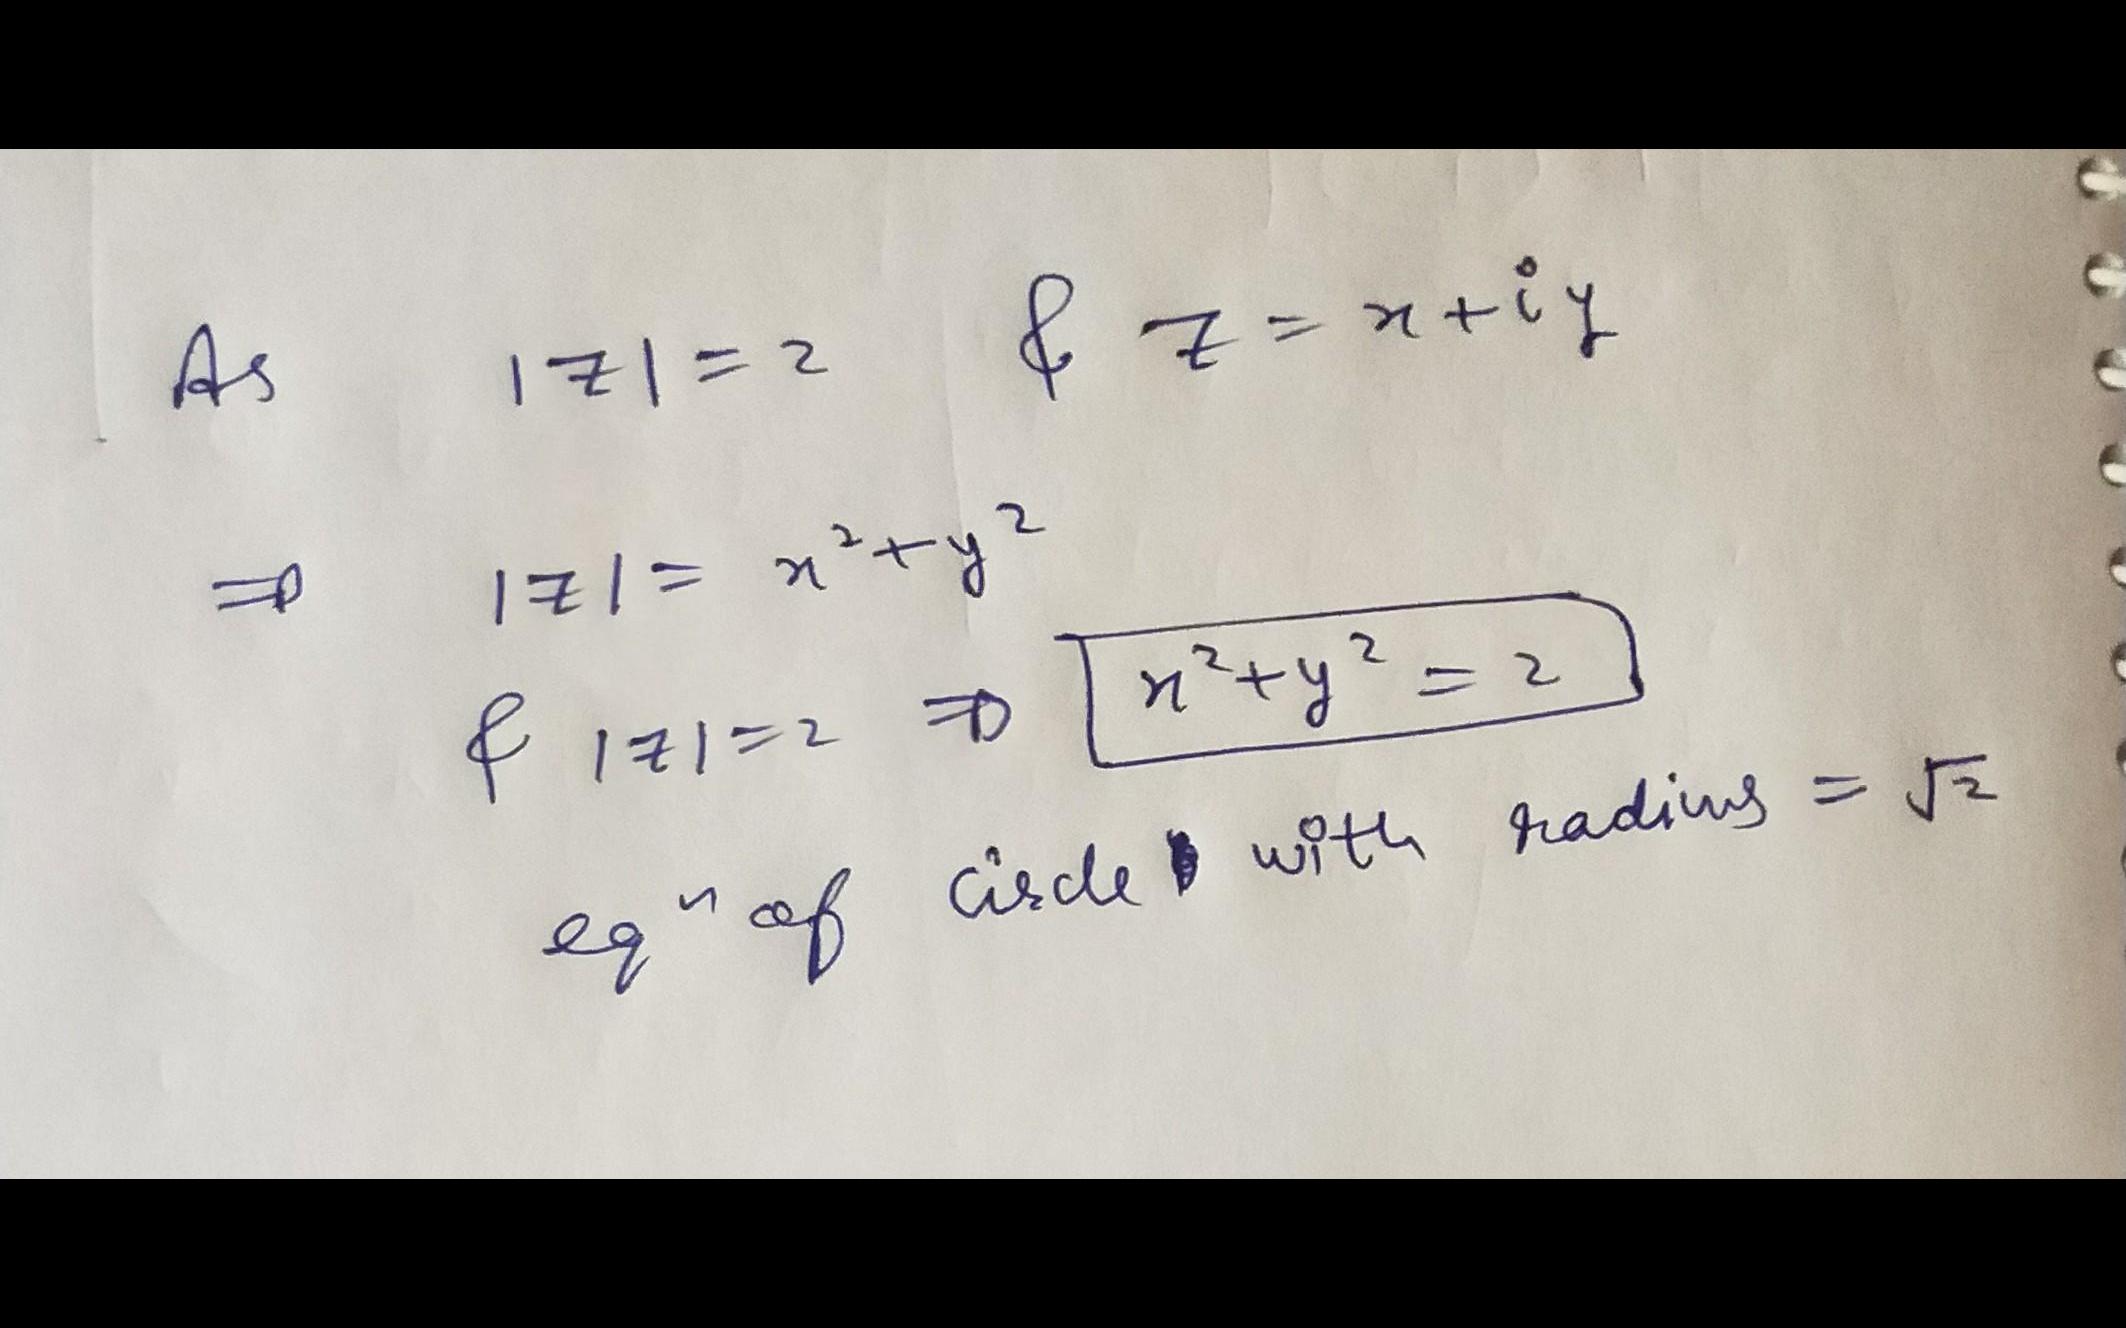 As |z| = 2 & z = x + iy
⇒ |z| = x² + y²
& |z| = 2 ⇒ x² + y² = 2
eqⁿ of circle with radius = √2